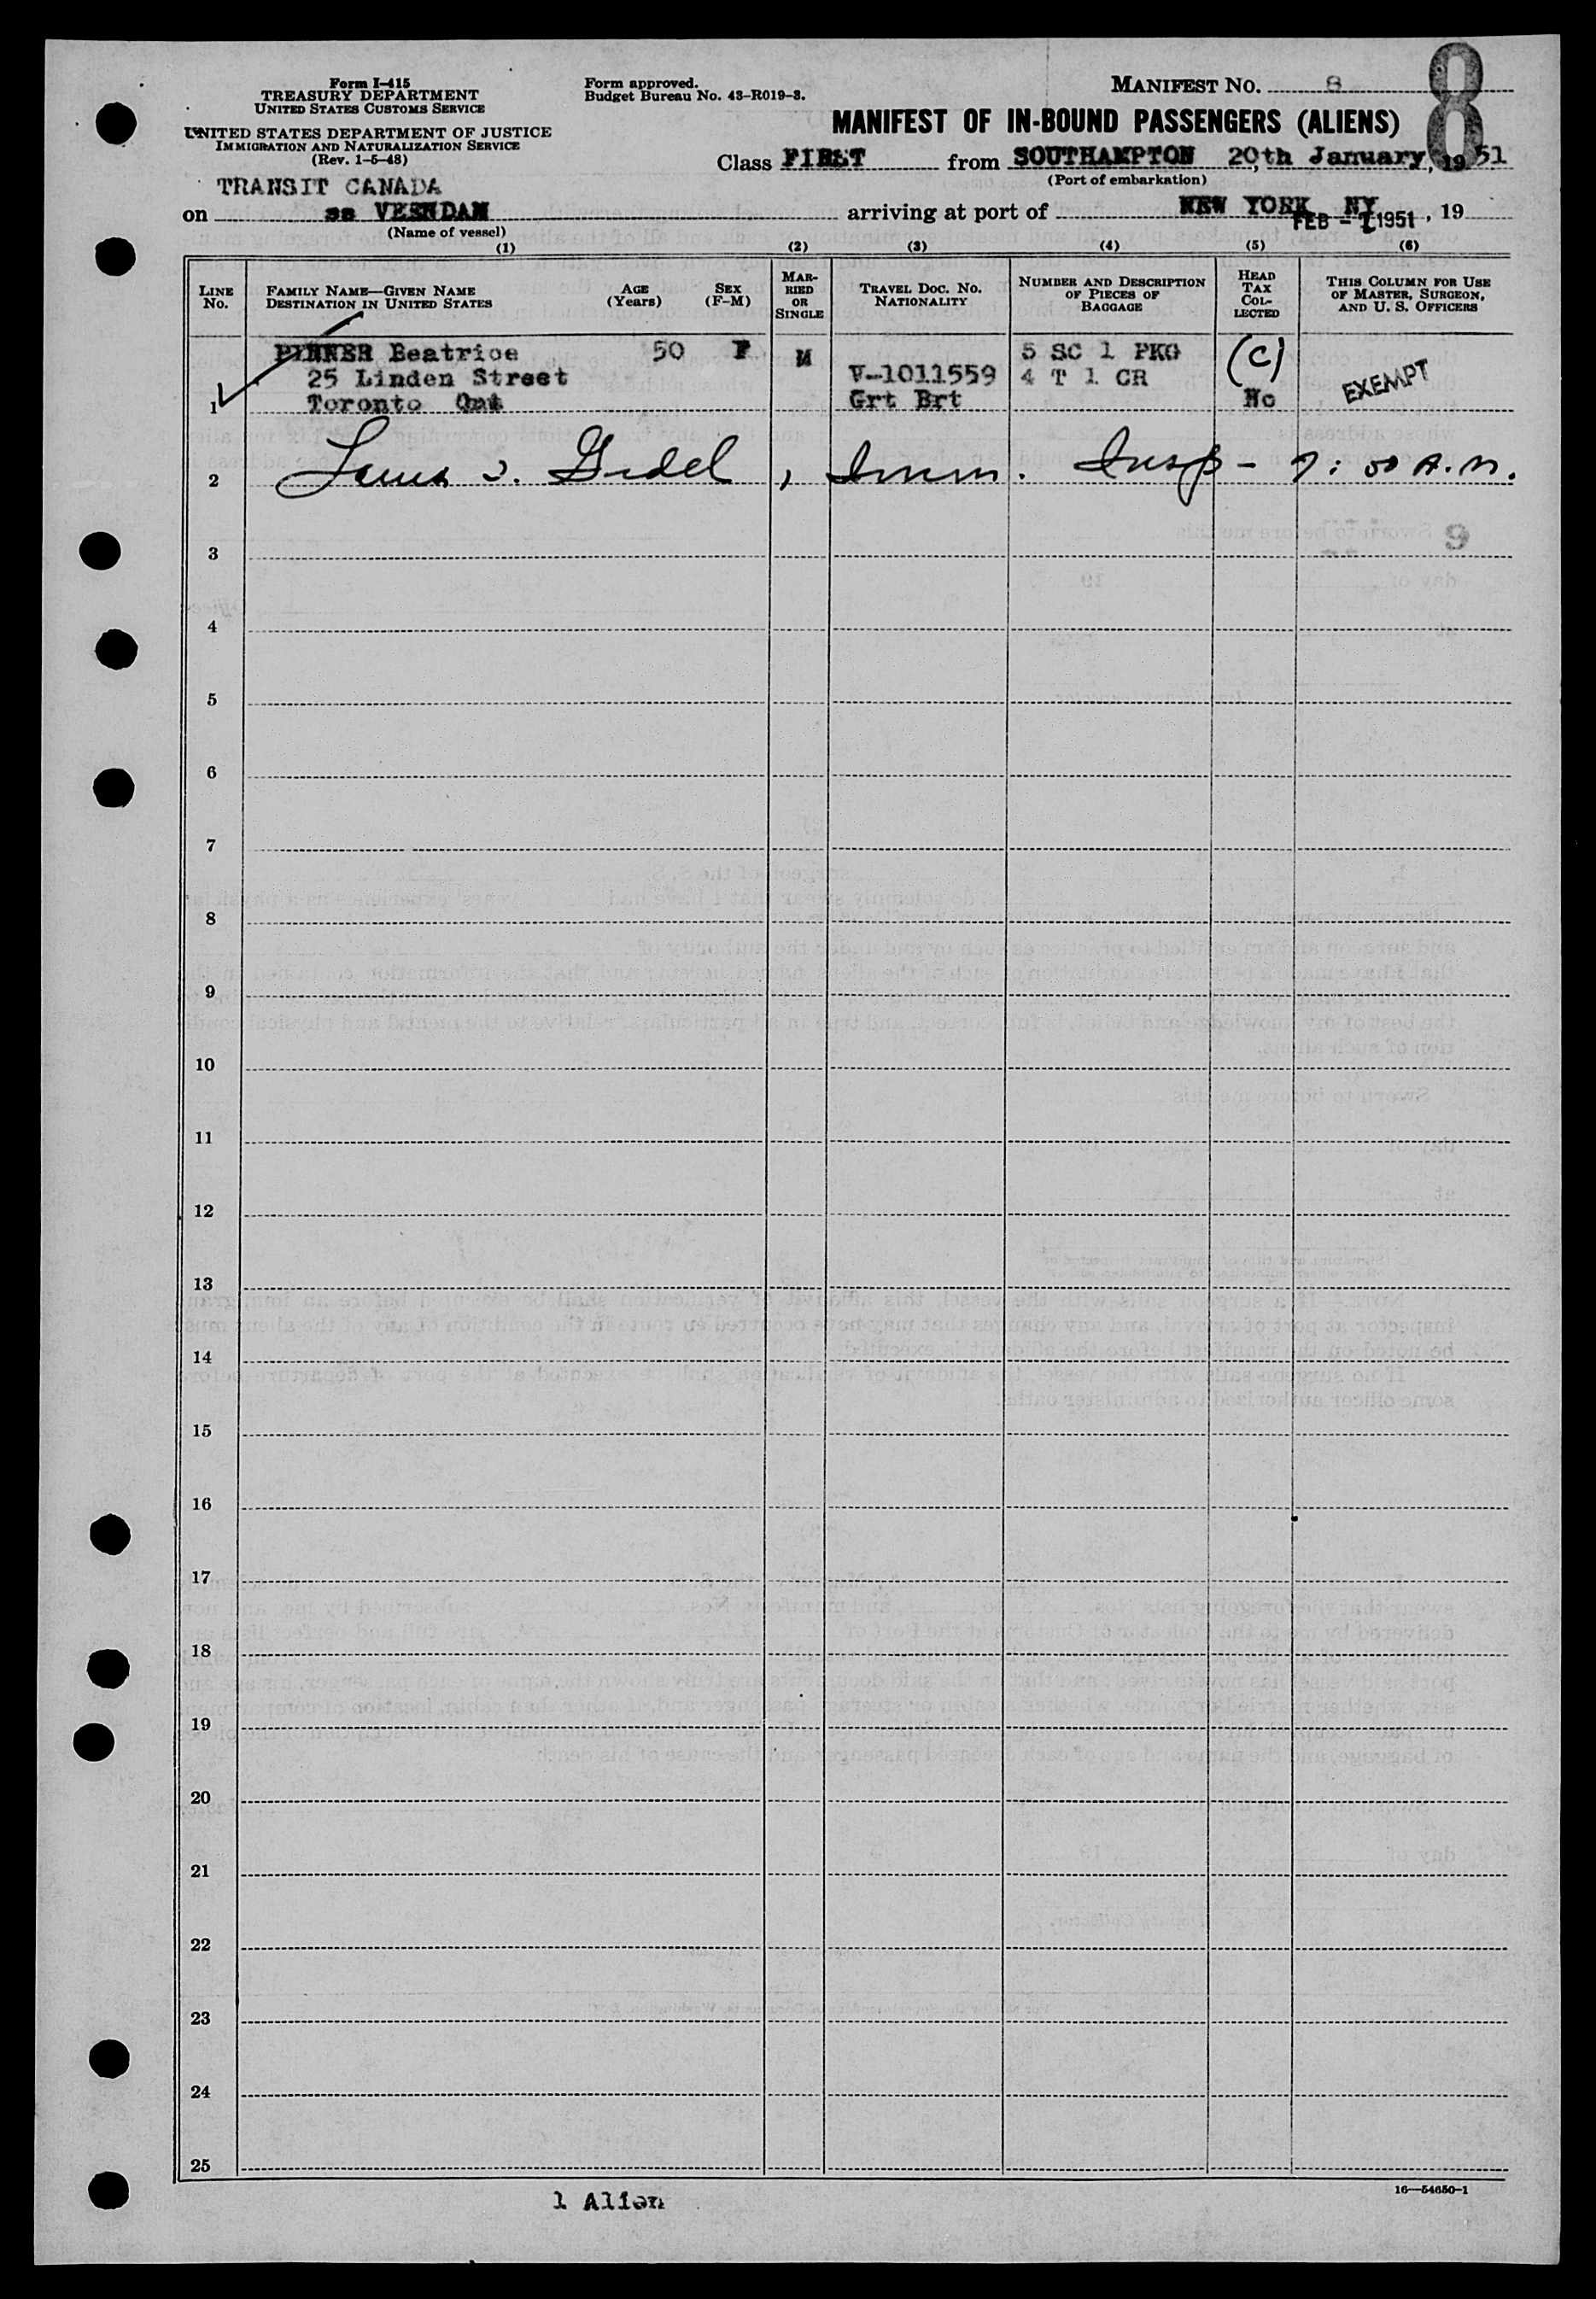 Form I-415
TREASURY DEPARTMENT
UNITED STATES CUSTOMS SERVICE
UNITED STATES DEPARTMENT OF JUSTICE
IMMIGRATION AND NATURALIZATION SERVICE
(Rev. 1-5-48)
Form approved.
Budget Bureau No. 43-R019-3.
MANIFEST NO. 8
8
MANIFEST OF IN-BOUND PASSENGERS (ALIENS)
Class FIRST from SOUTHAMPTON 20th January, 1951
(Port of embarkation)
TRANSIT CANADA
on ss VEENDAM arriving at port of NEW YORK NY, 19
FEB - 1 1951
(Name of vessel)
(1) (2) (3) (4) (5) (6)
LINE No. FAMILY NAME—GIVEN NAME DESTINATION IN UNITED STATES AGE (Years) SEX (F-M) MARRIED OR SINGLE TRAVEL DOC. NO. NATIONALITY NUMBER AND DESCRIPTION OF PIECES OF BAGGAGE HEAD TAX COLLECTED THIS COLUMN FOR USE OF MASTER, SURGEON, AND U. S. OFFICERS
Beatrice 50 F M 5 SC 1 PKG (C)
25 Linden Street V-1011559 4 T 1 CR EXEMPT
1 Toronto Ont Grt Brt No
2 , Imm. Insp - 7:50 A.M.
3
9
4
5
6
7
8
9
10
11
12
13
14
15
16
17
18
19
20
21
22
23
24
25
1 Alien
16—54650-1